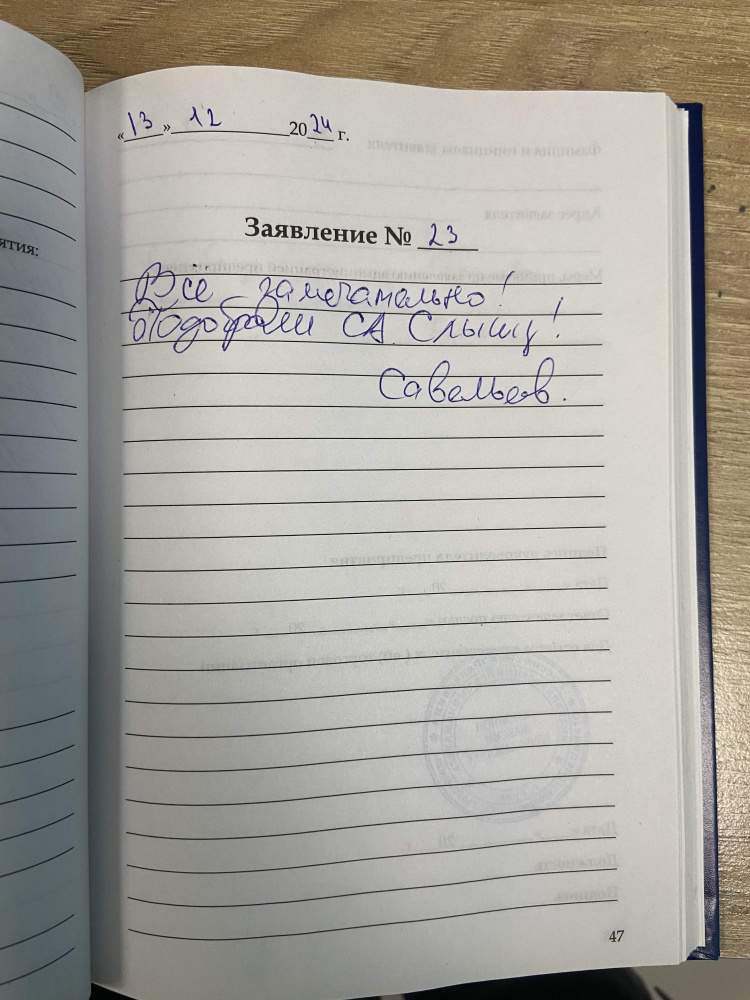 ятия:
«13» 12 2024 г.
Заявление № 23
Всё замечательно!
Подобрали СА. Слышу!
Савельев.
47